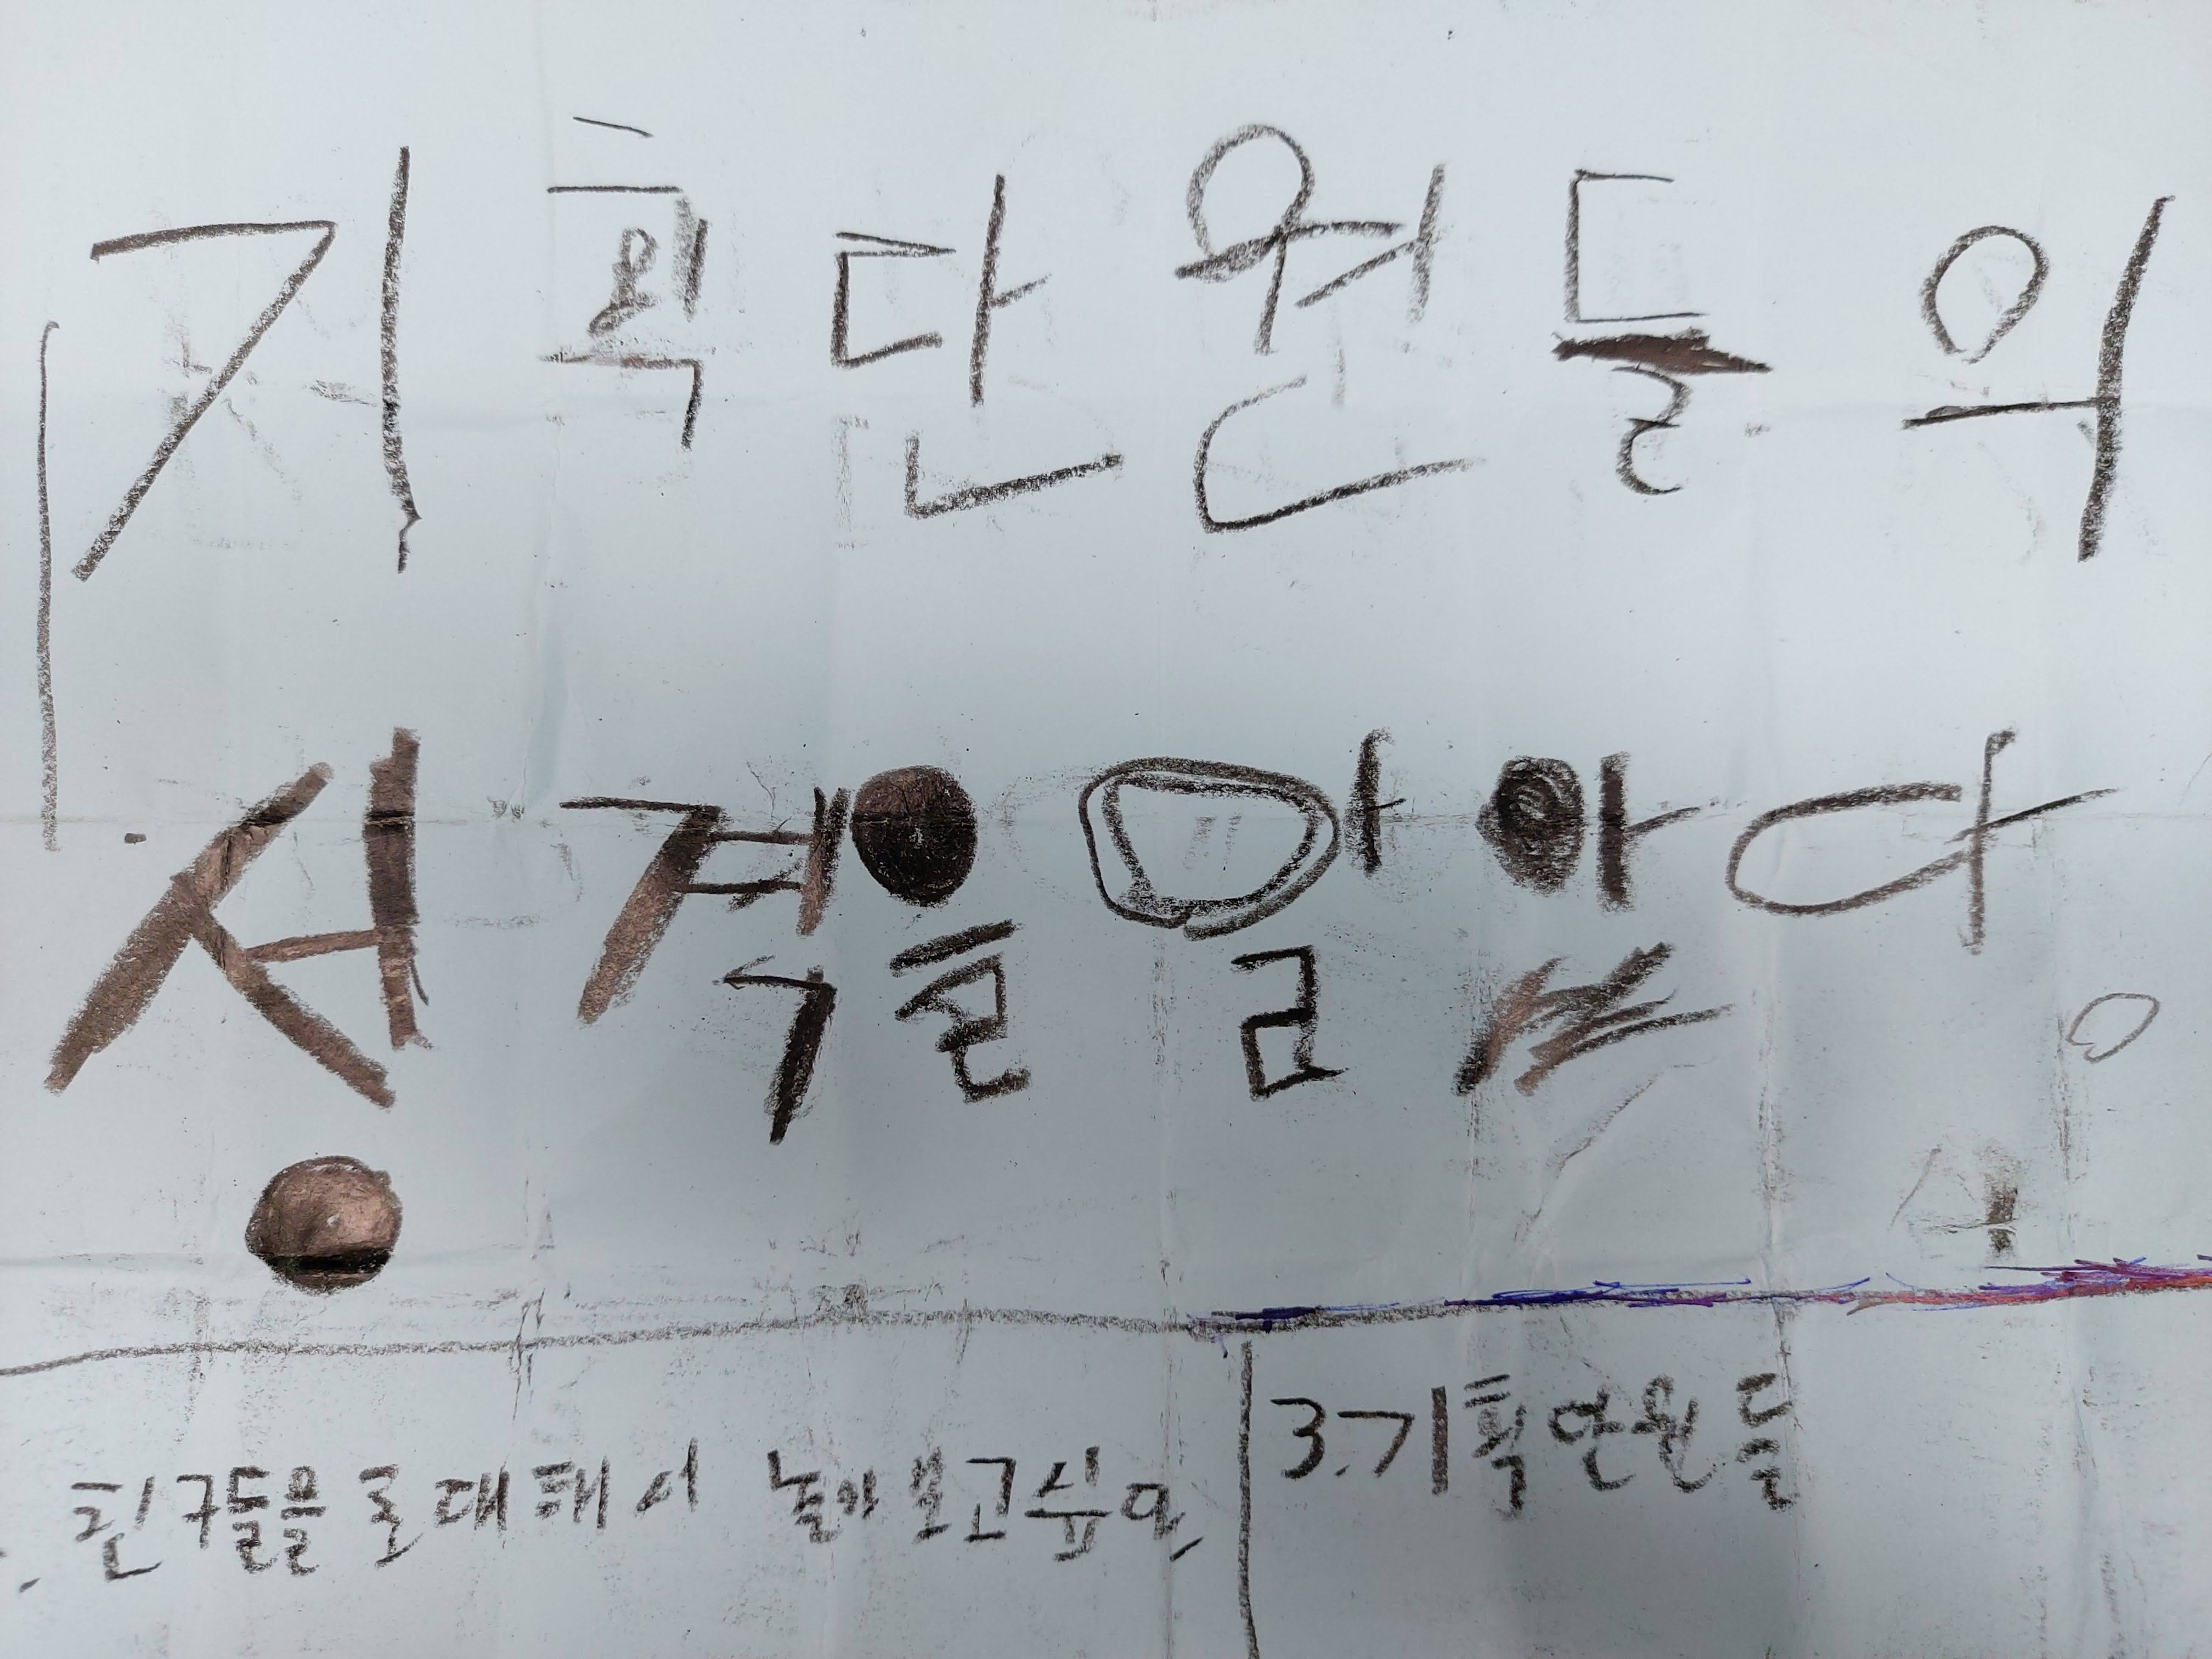 기획단원들의
성격을 알았다.
친구들을 로대해서 놀아보고싶다
3.기획단원들